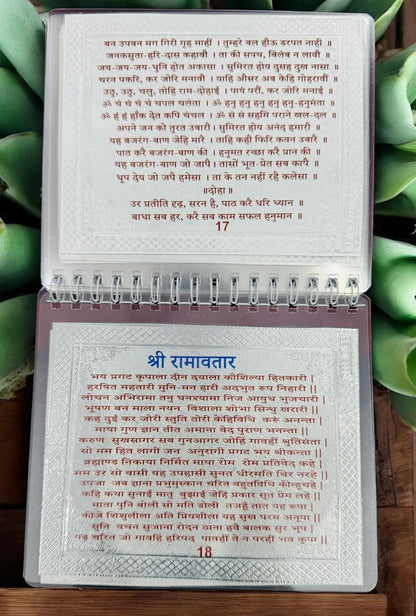 बन उपबन मग गिरी गृह माहीं । तुम्हरे बल हीऊ डरपत नाही ॥
जनकसुता-हरि-दास कहावौ । ता की सपथ, बिलंब न लावौ ॥
जय-जय-जय-धुनि होत अकासा । सुमिरत होय दुसह दुख नासा ॥
चरन पकरि, कर जोरि मनावौ । याहि औसर अब केहि गोहरावौं ॥
उठु, उठु, चलु, तोहि राम-दोहाई । पायं परौं, कर जोरि मनाई ॥
ॐ चं चं चं चं चपल चलंता । ॐ हनु हनु हनु हनु हनु-हनुमंता ॥
ॐ हुं हुं हाँक देत कपि चंचल । ॐ सं सं सहमि पराने खल-दल ॥
अपने जन को तुरत उबारौ । सुमिरत होय अनंद हमारौ ॥
यह बजरंग-बाण जेहि मारै । ताहि कहौ फिरि कवन उबारै ॥
पाठ करै बजरंग-बाण की । हनुमत रच्छा करै प्रान की ॥
यह बजरंग-बाण जो जापै । तासों भूत-प्रेत सब कापैं ॥
धूप देय जो जपै हमेसा । ता के तन नहीं रहै कलेसा ॥
॥दोहा॥
उर प्रतीति द्दढ़, सरन है, पाठ करै धरि ध्यान ॥
बाधा सब हर, करै सब काम सफल हनुमान ॥
17
श्री रामावतार
भय प्रगट कृपाला दीन दयाला कौशिल्या हितकारी |
हरषित महतारी मुनि-मन हारी अदभुत रूप निहारी ||
लोचन अभिरामा तनु घनश्यामा निज आयुध भुजचारी |
भूषण बन माला नयन विशाला शोभा सिन्धु खरारी ||
कह दुई कर जोरी स्तुति तोरी केहिविधि करूं अनन्ता |
माया गुण ज्ञान तीत अमाना वेद पुराण भनन्ता ||
करुण सुखसागर सब गुनआगर जोहिं गावहीं श्रुतिसंता |
सो मम हित लागी जन अनुरागी प्रगट भय श्रीकन्ता ||
ब्रह्माण्ड निकाया निर्मित माया रोम रोम प्रतिवेद कहे |
मम उर सो वासी यह उपहासी सुनत धीरमति थिर नरहे |
उपजा जब ज्ञाना प्रभुमुस्काना चरित बहुतविधि कीन्हचहे |
कहि कथा सुनाई मातु बुझाई जेहि प्रकार सुत प्रेम लहे ||
माता पुनि बोली सो मति डोली तजहूँ तात यह रूपा |
कीजे शिशुलीला अति प्रियशीला यह सुख परम अनूपा |
सुनि वचन सुजाना रोदन ठाना हवै बालक सुर भूप |
यह चरित जो गावहिं हरिपद पावहीं ते न परही भव कूपा |
18